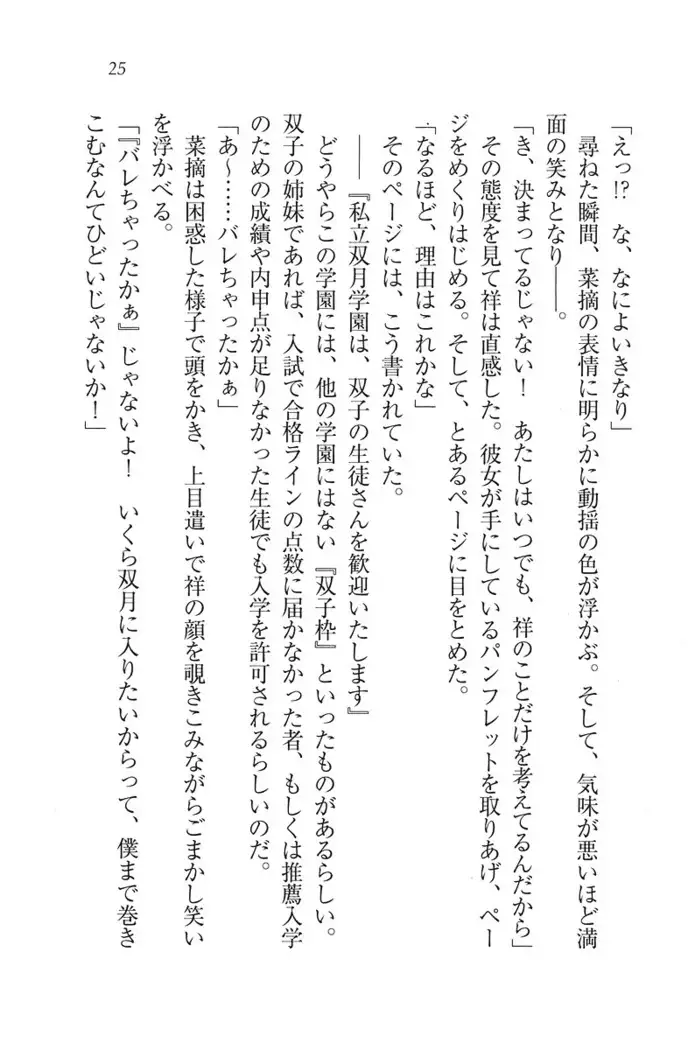 25
「えっ!?　な、なによいきなり」
　尋ねた瞬間、菜摘の表情に明らかに動揺の色が浮かぶ。そして、気味が悪いほど満
面の笑みとなり――。
「き、決まってるじゃない！　あたしはいつでも、祥のことだけを考えてるんだから」
　その態度を見て祥は直感した。彼女が手にしているパンフレットを取りあげ、ペー
ジをめくりはじめる。そして、とあるページに目をとめた。
「なるほど、理由はこれかな」
　そのページには、こう書かれていた。
　――『私立双月学園は、双子の生徒さんを歓迎いたします』
　どうやらこの学園には、他の学園にはない『双子枠』といったものがあるらしい。
双子の姉妹であれば、入試で合格ラインの点数に届かなかった者、もしくは推薦入学
のための成績や内申点が足りなかった生徒でも入学を許可されるらしいのだ。
「あ～……バレちゃったかぁ」
　菜摘は困惑した様子で頭をかき、上目遣いで祥の顔を覗きこみながらごまかし笑い
を浮かべる。
「『バレちゃったかぁ』じゃないよ！　いくら双月に入りたいからって、僕まで巻き
こむなんてひどいじゃないか！」